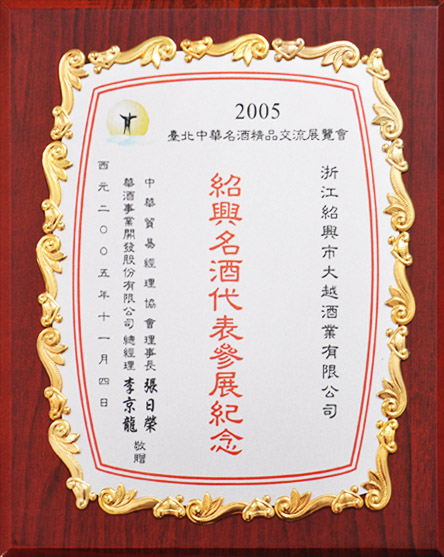 2005
臺北中華名酒精品交流展覽會
浙江紹興市大越酒業有限公司
紹興名酒代表參展紀念
中華貿易經理協會理事長 張日榮
華酒事業開發股份有限公司總經理 李京龍 敬贈
西元二〇〇五年十一月四日